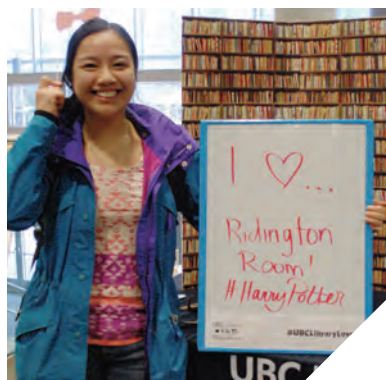 I ♡...
Ridington
Room!
#HarryPotter
#UBCLibraryLove
UBC